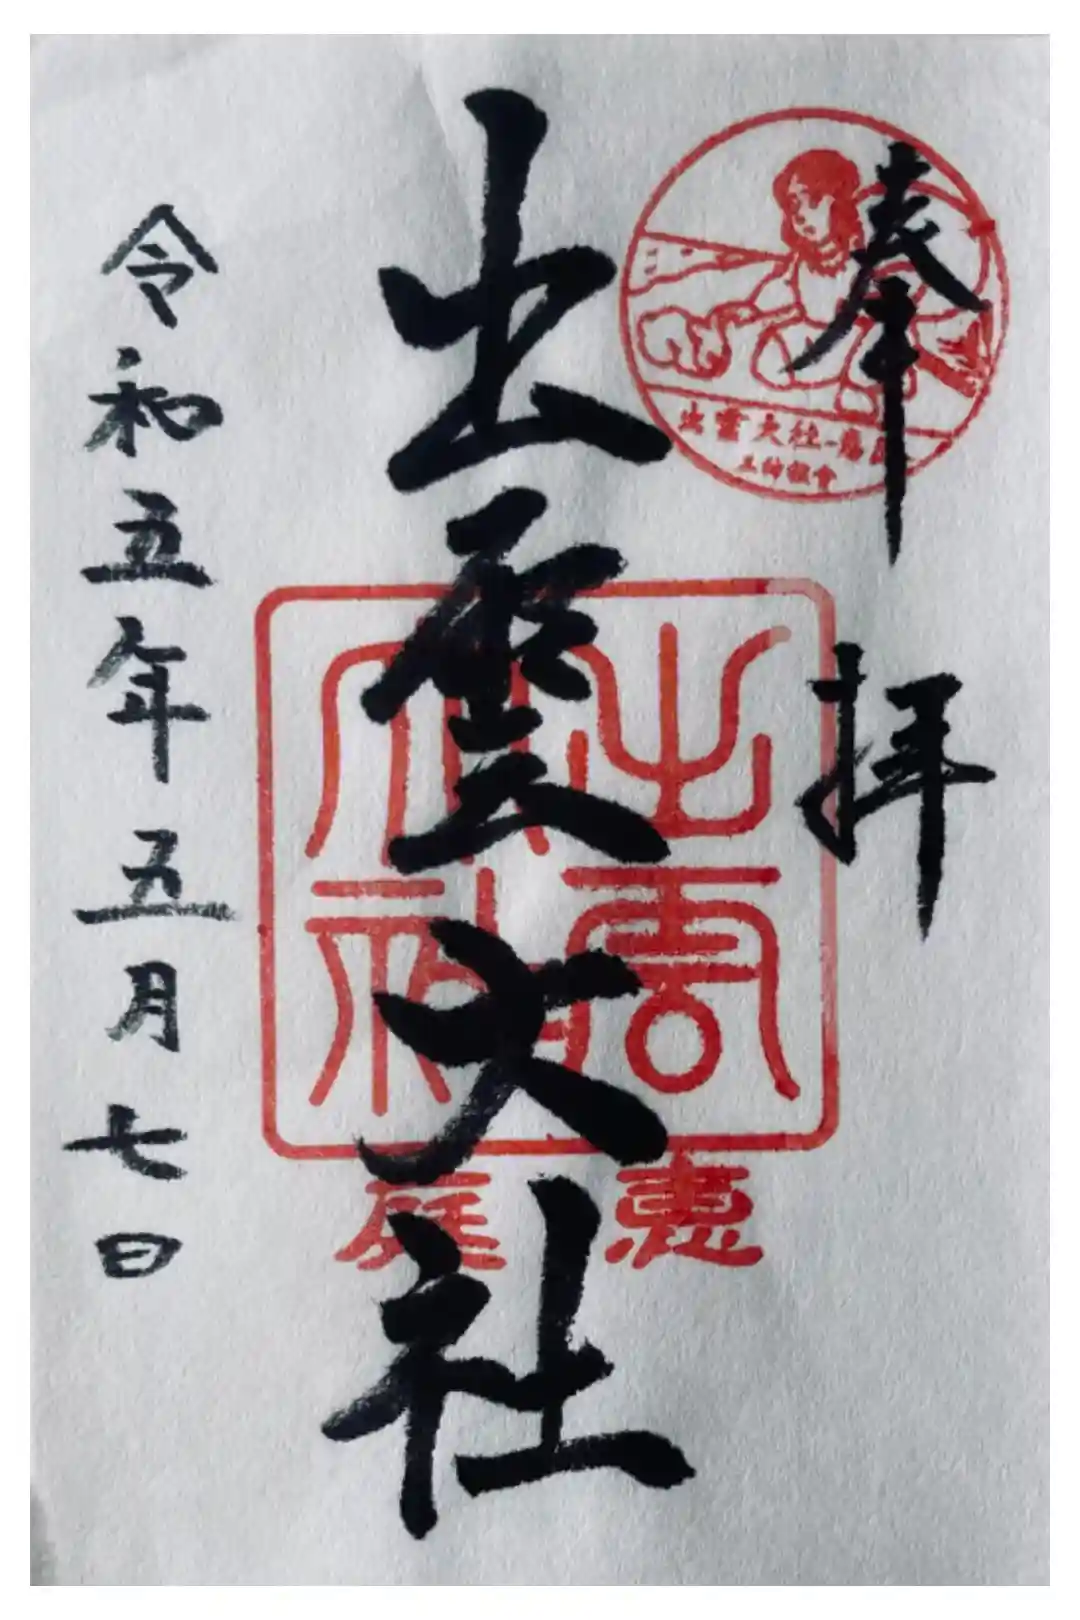 奉拝
出雲大社
出雲大社
恵庭
出雲大社
令和五年五月七日